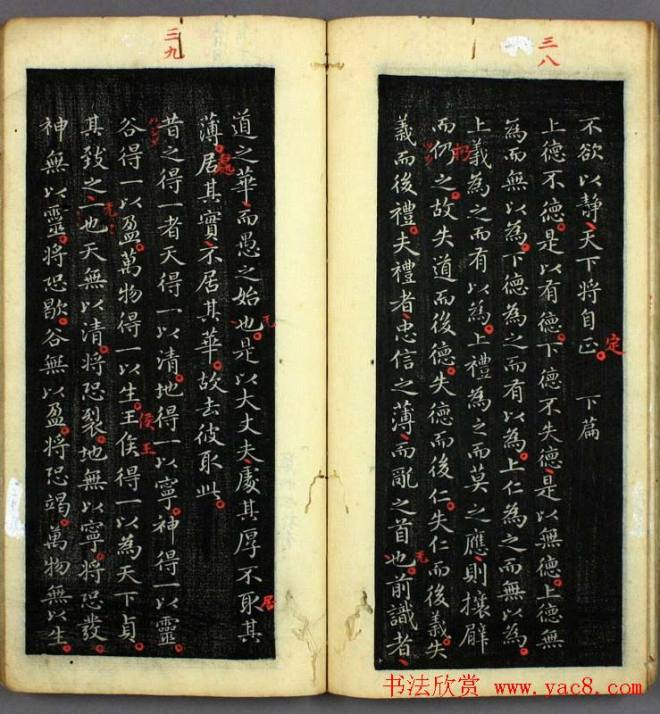 三八
不欲以静天下将自正 下篇
定
上德不德是以有德下德不失德是以無德上德無
為而無以為下德為之而有以為上仁為之而無以為
上義為之而有以為上禮為之而莫之應則攘臂
而仍之故失道而後德失德而後仁失仁而後義失
扔
義而後禮夫禮者忠信之薄而亂之首也前識者
无
三九
道之華而愚之始也是以大丈夫處其厚不取其
无
居
薄居其實不居其華故去彼取此
昔之得一者天得一以清地得一以寧神得一以靈
谷得一以盈萬物得一以生王侯得一以為天下貞
侯王
其致之一也天無以清將恐裂地無以寧將恐發
神無以靈將恐歇谷無以盈將恐竭萬物無以生
书法欣赏 www.yac8.com